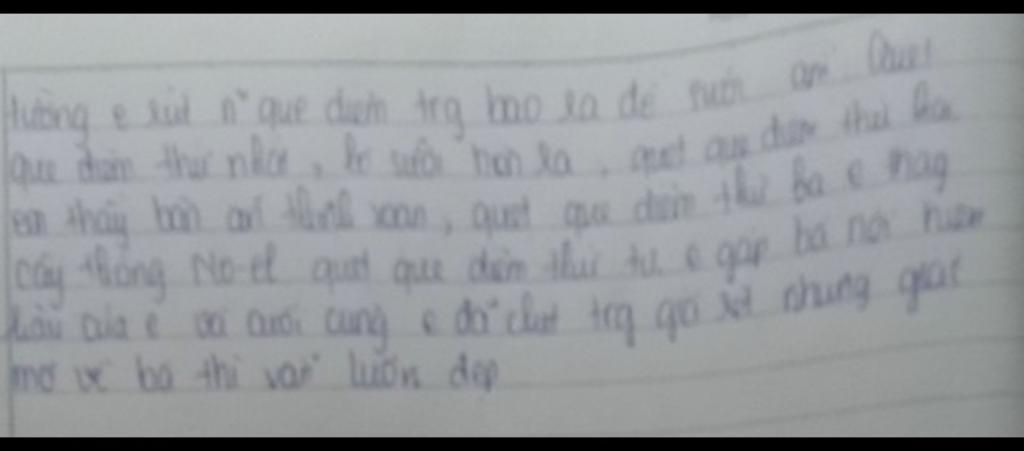 tường e rút n~ que diêm trg bao ra để sưởi ấm Quẹt
que diêm thứ nhất, lò sưởi hiện ra, quẹt que diêm thứ hai
em thấy bàn ăn thịnh soạn, quẹt que diêm thứ ba e thấy
cây thông No-el quẹt que diêm thứ tư e gặp bà nội hiền
hậu của e và cuối cùng e đã chết trg giá rét nhưng giấc
mơ về bà thì vẫn luôn đẹp